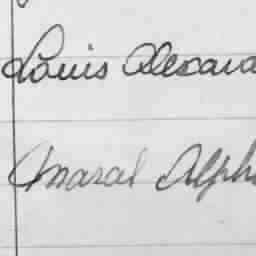 Louis Alexand
Amaral Alpho